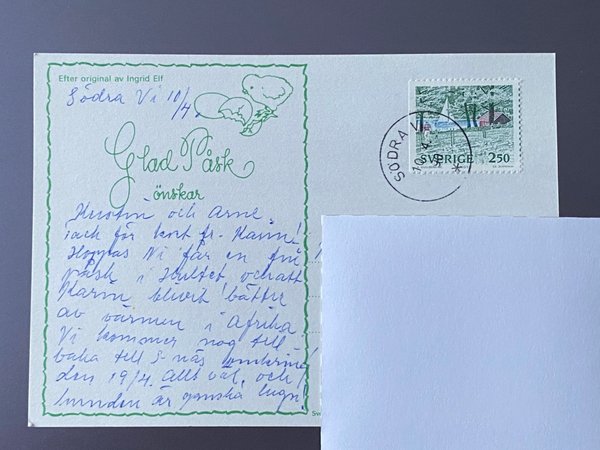 Efter original av Ingrid Elf
Södra Vi 10/4.
Glad Påsk
önskar
och Arne.
Tack för kort fr. Karin!
Hoppas Ni får en fin
påsk i Hultet och att
Karin blivit bättre
av värmen i Afrika
Vi kommer nog till
baka till S-näs omkring
den 19/4. Allt väl, och
hunden är ganska lugn!
SÖDRA VI
10.4.90
SVERIGE 2.50
Sv